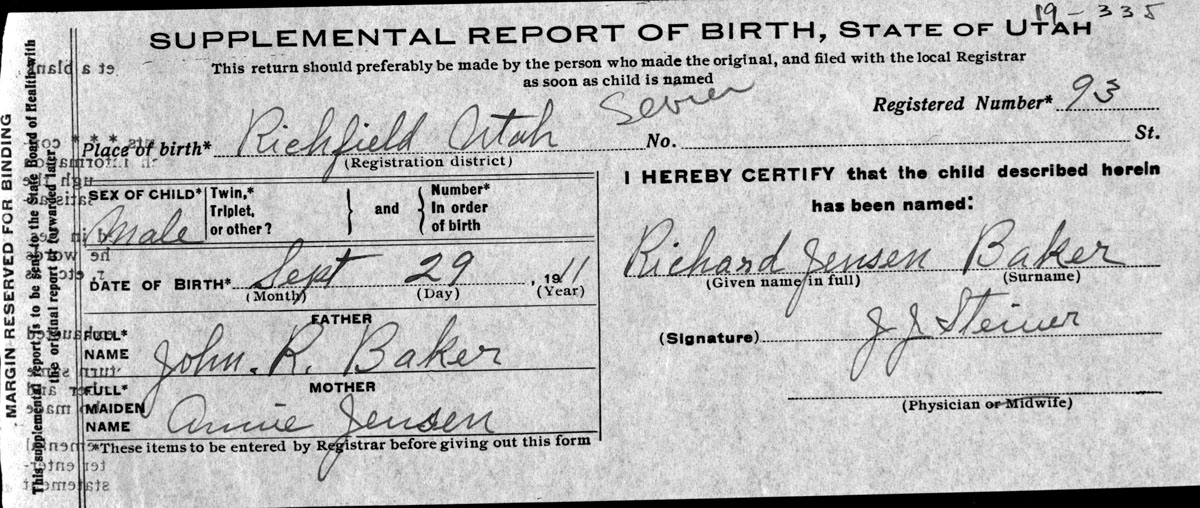 19-335
SUPPLEMENTAL REPORT OF BIRTH, STATE OF UTAH
This return should preferably be made by the person who made the original, and filed with the local Registrar
as soon as child is named
Registered Number* 93
Sevier
Place of birth* Richfield Utah No. St.
(Registration district)
SEX OF CHILD* Male
Twin,*
Triplet,
or other?
} and {
Number*
In order
of birth
DATE OF BIRTH* Sept 29, 1911
(Month) (Day) (Year)
FATHER
FULL*
NAME John. R. Baker
MOTHER
FULL*
MAIDEN
NAME Annie Jensen
*These items to be entered by Registrar before giving out this form
I HEREBY CERTIFY that the child described herein
has been named:
Richard Jensen Baker
(Given name in full) (Surname)
(Signature) J J Steiner
(Physician or Midwife)
MARGIN RESERVED FOR BINDING
This supplemental report is to be sent to the State Board of Health with
the original report or forwarded later